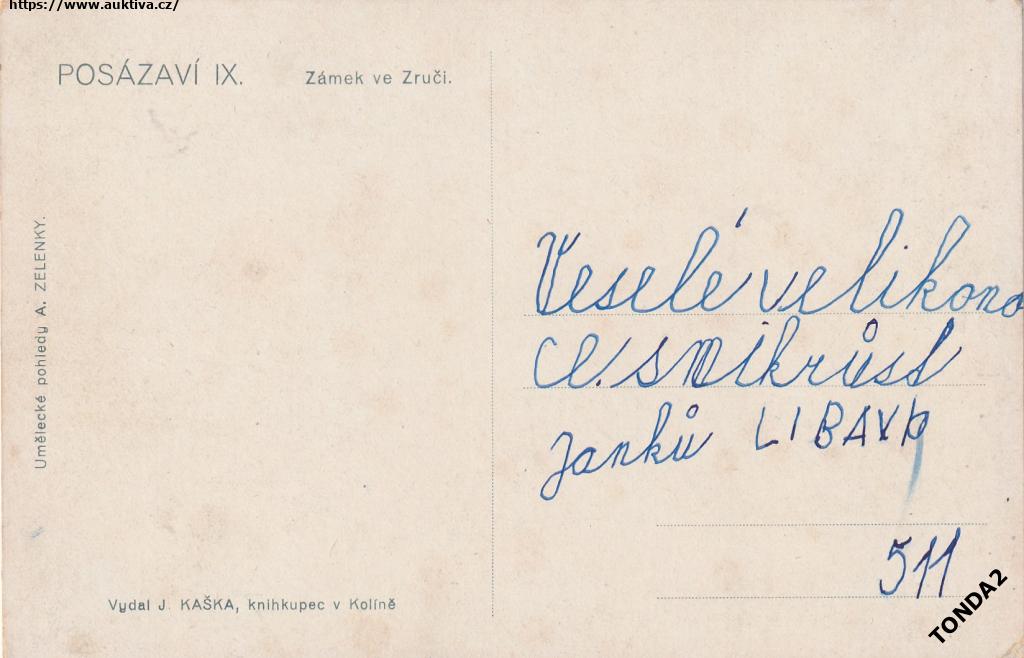 https://www.auktiva.cz/
POSÁZAVÍ IX. Zámek ve Zruči.
Umělecké pohledy A. ZELENKY.
Veselé velikono
ce.
Janků LIBAVA
511
Vydal J. KAŠKA, knihkupec v Kolíně
TONDA2